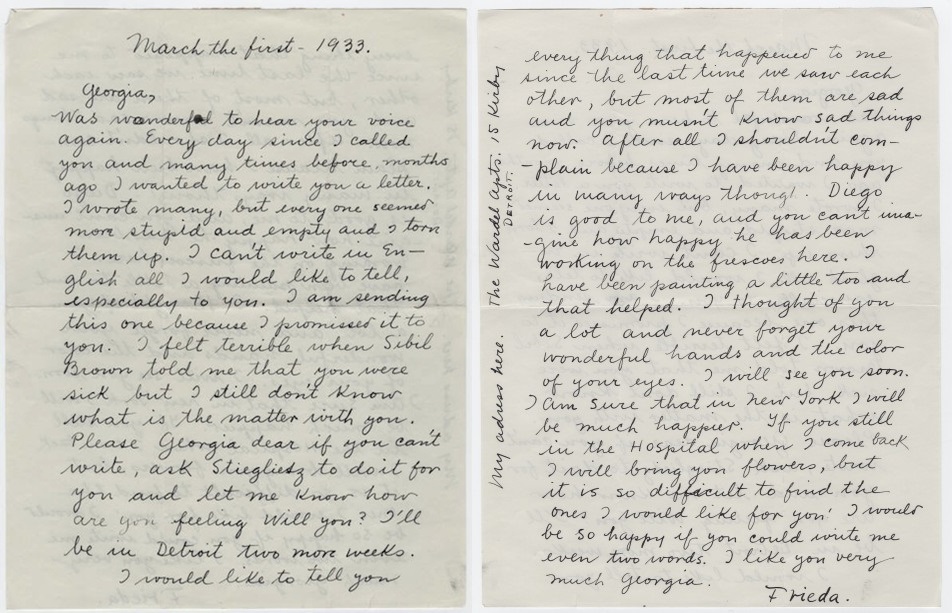 March the first - 1933.
Georgia,
Was wonderful to hear your voice
again. Every day since I called
you and many times before, months
ago I wanted to write you a letter.
I wrote many, but every one seemed
more stupid and empty and I torn
them up. I can't write in En-
glish all I would like to tell,
especially to you. I am sending
this one because I promissed it to
you. I felt terrible when Sibil
Brown told me that you were
sick but I still don't know
what is the matter with you.
Please Georgia dear if you can't
write, ask Stiegliesz to do it for
you and let me know how
are you feeling Will you? I'll
be in Detroit two more weeks.
I would like to tell you
every thing that happened to me
since the last time we saw each
other, but most of them are sad
and you musn't know sad things
now. After all I shouldn't com-
-plain because I have been happy
in many ways though. Diego
is good to me, and you can't ima-
-gine how happy he has been
working on the frescoes here. I
have been painting a little too and
that helped. I thought of you
a lot and never forget your
wonderful hands and the color
of your eyes. I will see you soon.
I am sure that in New York I will
be much happier. If you still
in the Hospital when I come back
I will bring you flowers, but
it is so difficult to find the
ones I would like for you. I would
be so happy if you could write me
even two words. I like you very
much Georgia.
Frieda.
My adress here. The Wardel Apts. 15 Kirby
DETROIT.